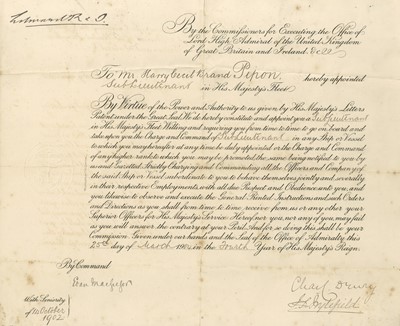 By the Commissioners for Executing the Office of
Lord High Admiral of the United Kingdom
of Great Britain and Ireland. &c &c
To Mr. Harry Cecil Brand Pipon, hereby appointed
Sub Lieutenant in His Majesty's Fleet
By Virtue of the Power and Authority to us given by His Majesty's Letters
Patent under the Great Seal, We do hereby constitute and appoint you a Sub Lieutenant
in His Majesty's Fleet Willing and requiring you from time to time to go on board and
take upon you the Charge and Command of Sub Lieutenant in any Ship or Vessel
to which you may hereafter at any time be duly appointed or the Charge and Command
of any higher rank to which you may be promoted the same being notified to you by
us and Gazetted, Strictly Charging and Commanding all the Officers and Company of
the said Ship or Vessel subordinate to you to behave themselves jointly and severally
in their respective Employments with all due Respect and Obedience unto you, and
you likewise to observe and execute the General Printed Instructions and such Orders
and Directions as you shall from time to time receive from us or any other your
Superior Officers for His Majesty's Service Hereof nor you, nor any of you, may fail
as you will answer the contrary at your Peril. And for so doing this shall be your
Commission. Given under our hands and the Seal of the Office of Admiralty this
day of March in the Fourth Year of His Majesty's Reign.
By Command
Evan MacGregor
With Seniority
of October
1902